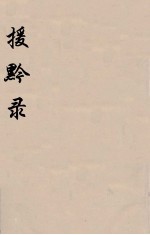 援黔录